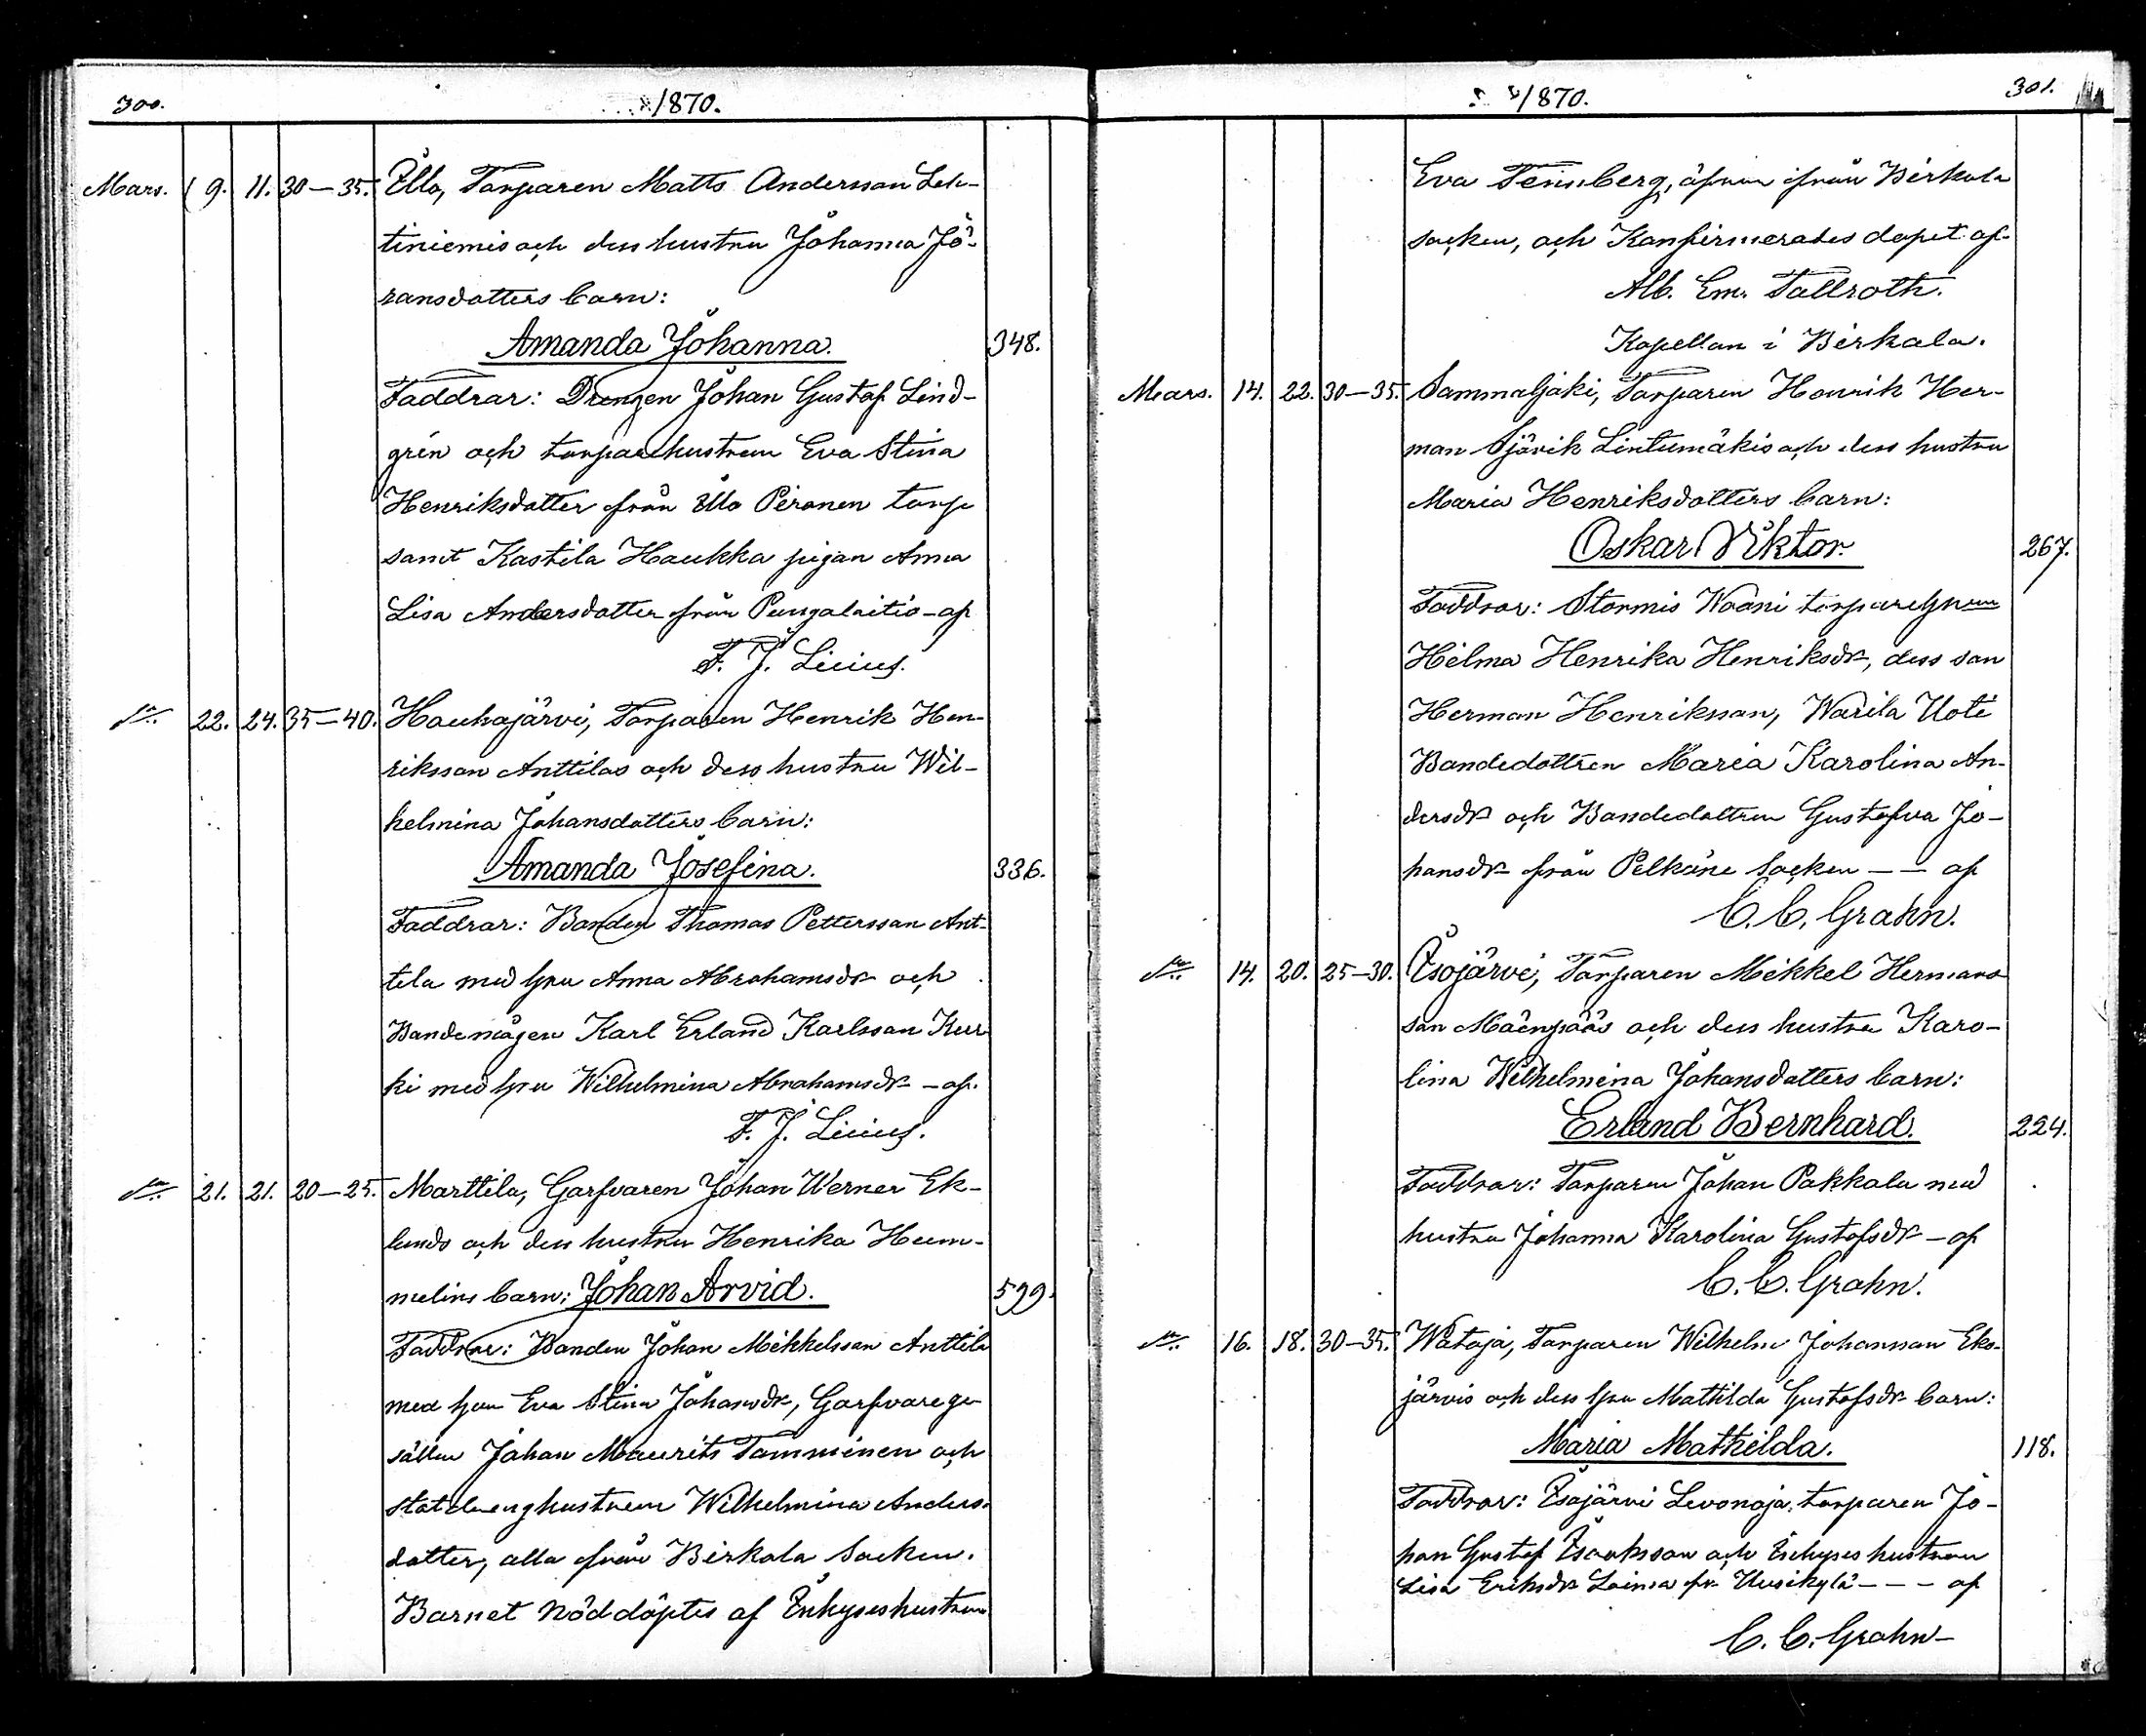 300.
1870.
Mars. 9. 11. 30–35. Illo, Torparen Matts Andersson Leh-
tiniemis och dess hustru Johanna Jö-
ransdotters barn:
Amanda Johanna. 348.
Faddrar: Drengen Johan Gustaf Lind-
grén och torparehustrun Eva Stina
Henriksdotter från Illo Pironen torp
samt Kastila Haukka pigan Anna
Lisa Andersdotter från Pungalaitio – af
F. J. Lucius.
D:o 22. 24. 35–40. Houhajärvi, Torparen Henrik Hen-
riksson Anttilas och dess hustru Wil-
helmina Johansdotters barn:
Amanda Josefina. 336.
Faddrar: Bonden Thomas Pettersson Ant-
tila med hru Anna Abrahamsdr och
Bondemågen Karl Erland Karlsson Kur-
ki med hru Wilhelmina Abrahamsdr – af.
F. J. Lucius.
D:o 21. 21. 20–25. Marttila, Garfvaren Johan Werner Ek-
lunds och dess hustru Henrika Hum-
melins barn: Johan Arvid. 599.
Faddrar: Bonden Johan Mikkelsson Anttila
med hru Eva Stina Johansdr, Garfvarege-
sällen Johan Maurits Tamminen och
statdrenghustrun Wilhelmina Anders-
dotter, alla från Birkala Socken.
Barnet nöddöptes af Inhyseshustrun
1870.
301.
Eva Tennberg, äfven från Birkala
socken, och Konfirmerades dopet af
Alb. Em. Tallroth.
Kapellan i Birkala.
Mars. 14. 22. 30–35. Sammaljoki, Torparen Henrik Her-
man Sjövik Lintumäkis och dess hustru
Maria Henriksdotters barn:
Oskar Viktor. 267.
Faddrar: Stormis Waani torparehrun
Hilma Henrika Henriksdr, dess son
Herman Henriksson, Warila Uoti
Bondedottren Maria Karolina An-
dersdr och Bondedottren Gustafva Jo-
hansdr från Pelkäne Socken – – af
C. C. Grahn.
D:o 14. 20. 25–30. Isojärvi, Torparen Mikkel Hermans-
son Mäenpääs och dess hustru Karo-
lina Wilhelmina Johansdotters barn:
Erland Bernhard. 224.
Faddrar: Torparen Johan Pakkala med
hustru Johanna Karolina Gustafsdr – af
C. C. Grahn.
D:o 16. 18. 30–35. Wataja, Torparen Wilhelm Johansson Eks-
järvis och dess hru Mathilda Gustafsdr barn:
Maria Mathilda. 118.
Faddrar: Isojärvi Levonoja torparen Jo-
han Gustaf Isaksson och Inhyses hustrun
Lisa Eriksdr Loima fr. Uusikylä – – – af
C. C. Grahn –